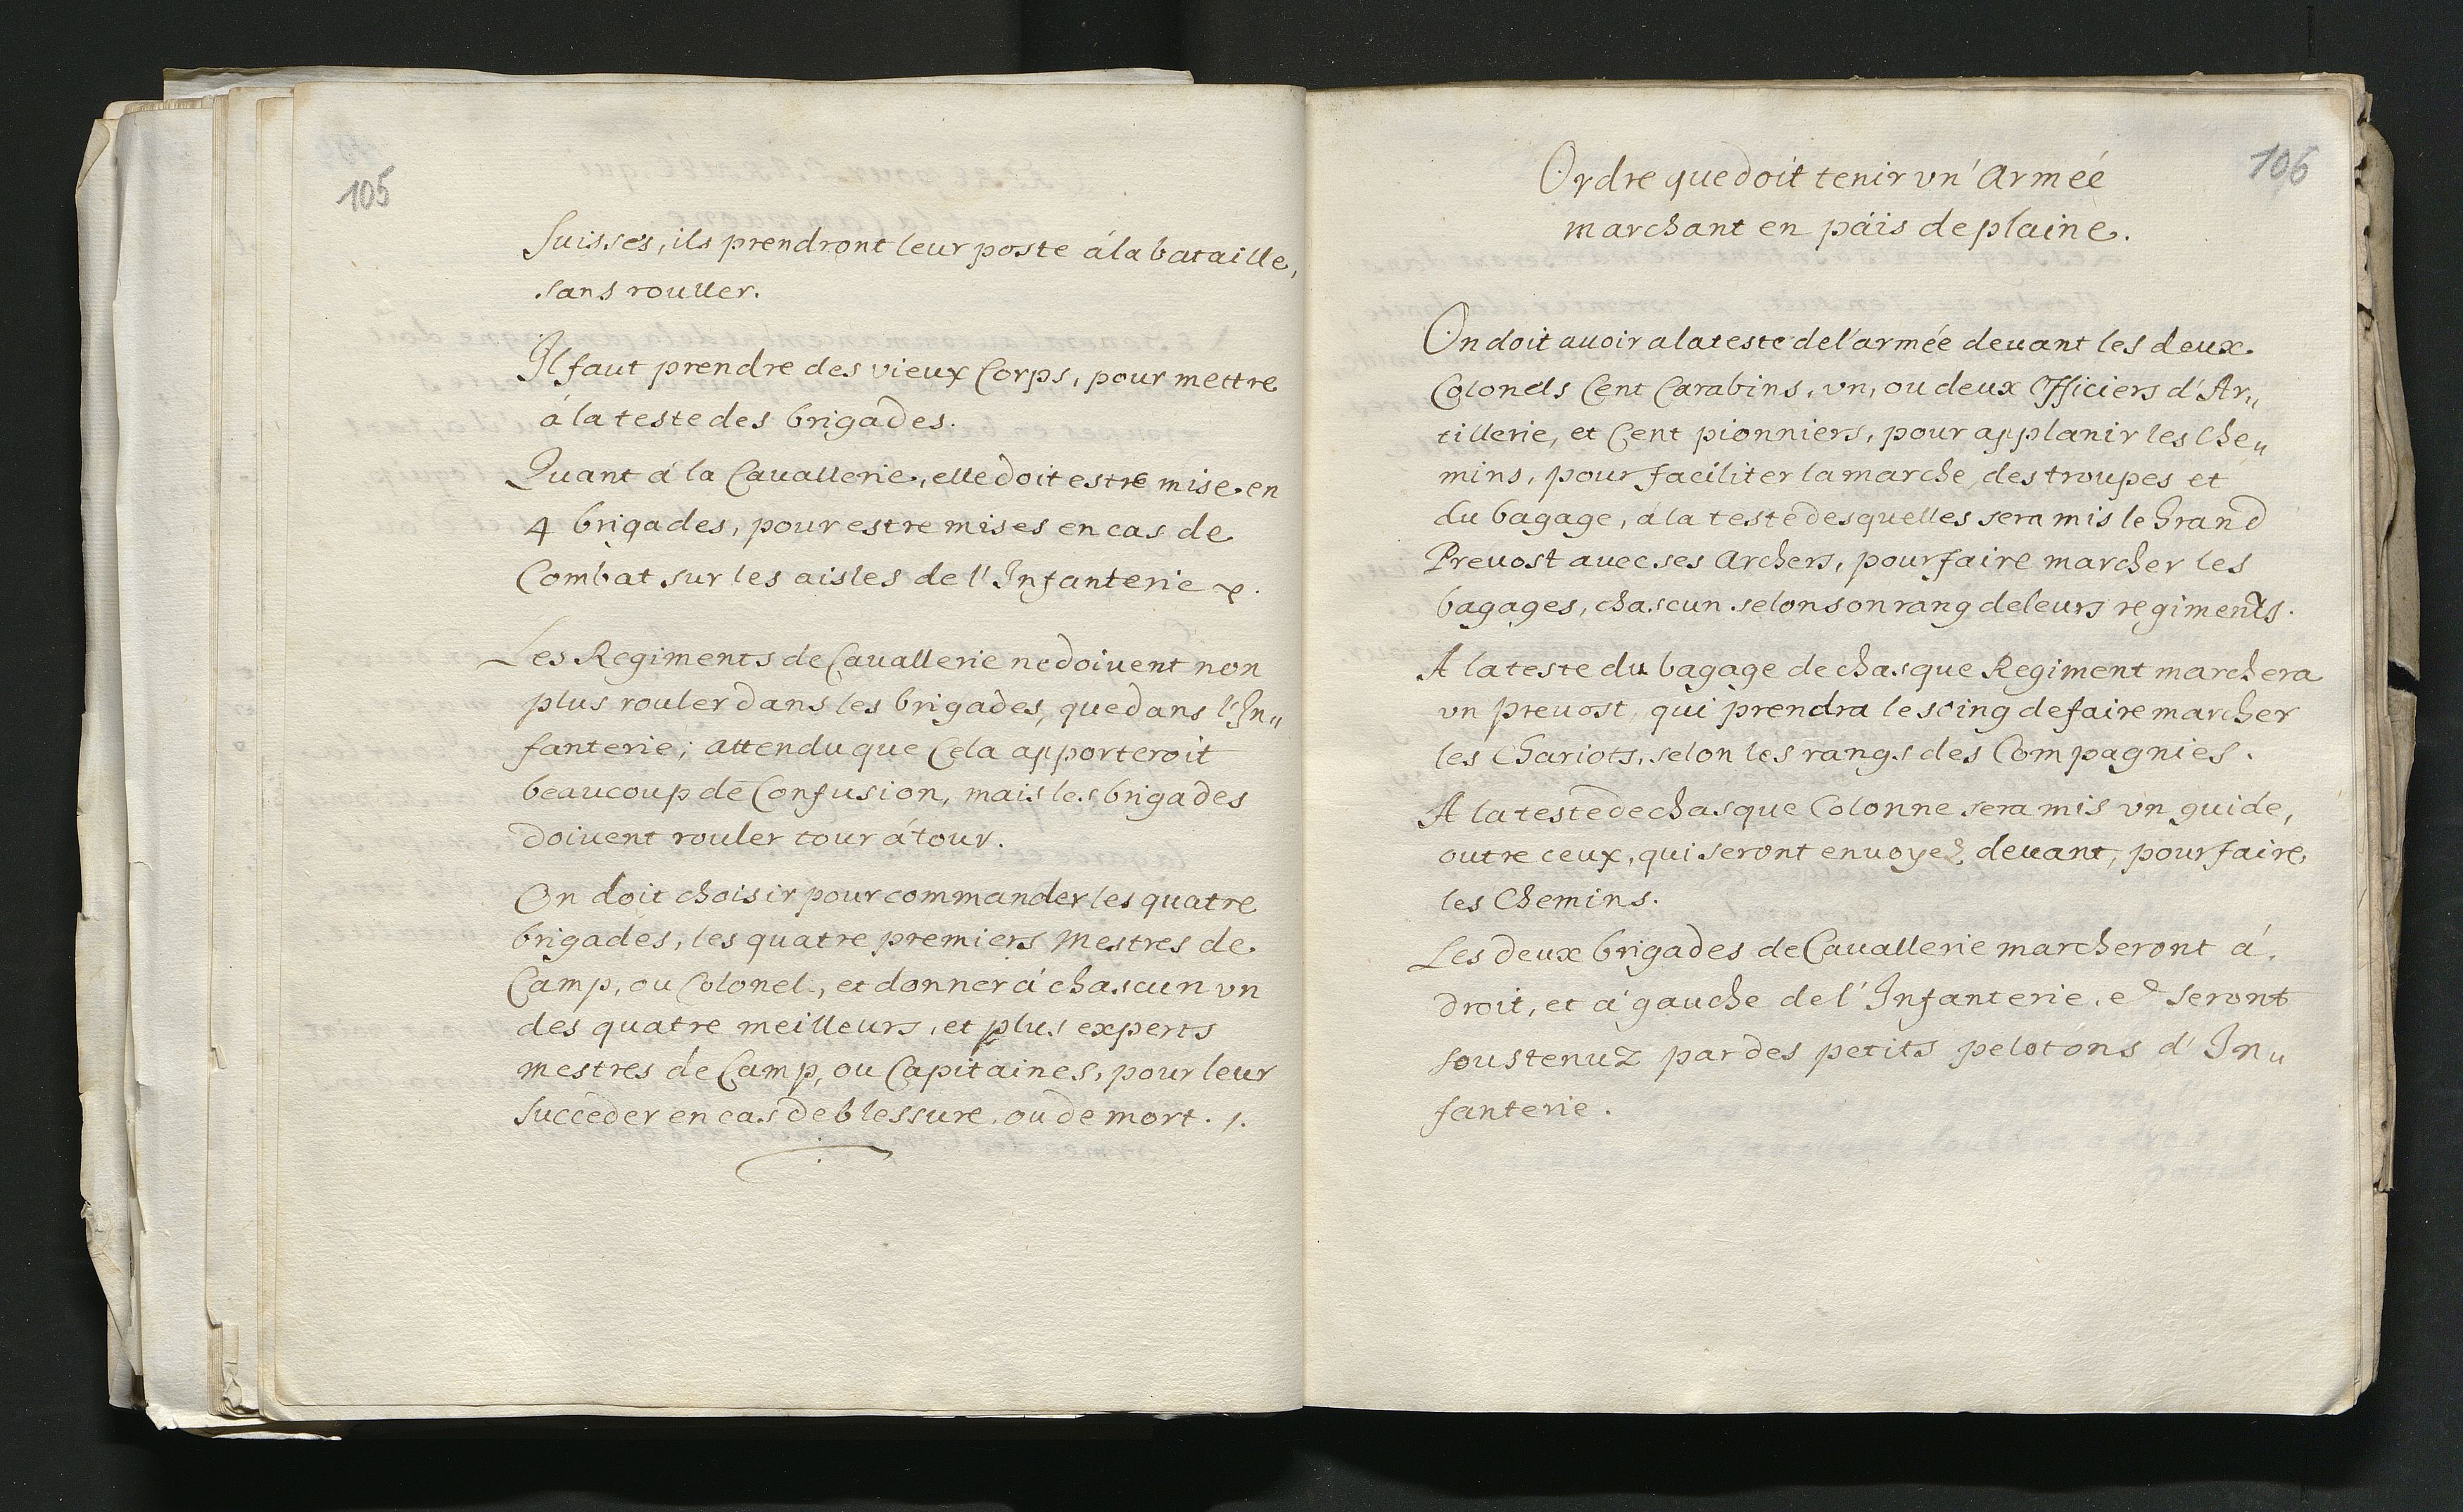 105
Suisses, ils prendront leur poste á la bataille,
sans rouller.
Il faut prendre des vieux Corps, pour mettre
á la teste des brigades.
Quant á la Cauallerie, elle doit estre mise en
4 brigades, pour estre mises en cas de
Combat sur les aisles de l'Infanterie
Les Regiments de Cauallerie ne doiuent non
plus rouler dans les brigades, que dans l'In„
fanterie; attendu que Cela apporteroit
beaucoup de Confusion, mais les brigades
doiuent rouler tour á tour.
On doit choisir pour commander les quatre
brigades, les quatre premiers Mestres de
Camp, ou Colonel, et donner á chascun vn
des quatre meilleurs, et plus experts
mestres de Camp, ou Capitaines, pour leur
succeder en cas de blessure, ou de mort. /.
106
Ordre que doit tenir vn' Armeé
marchant en páis de plaine.
On doit auoir a la teste de l'armée deuant les deux
Colonels Cent Carabins, vn, ou deux Officiers d'Ar„
tillerie, et Cent pionniers, pour applanir les Che„
mins, pour faciliter la marche des troupes et
du bagage, á la teste desquelles sera mis le Grand
Preuost auec ses Archers, pour faire marcher les
bagages, chascun selon son rang de leurs regiments.
A la teste du bagage de chasque Regiment marchera
vn preuost, qui prendra le soing de faire marcher
les Chariots, selon les rangs des Compagnies.
A la teste de chasque Colonne sera mis vn guide,
outre ceux, qui seront enuoyez deuant, pour faire
les Chemins.
Les deux brigades de Cauallerie marcheront á
droit, et á gauche de l'Infanterie, et seront
soustenuz par des petits pelotons d'In„
fanterie.